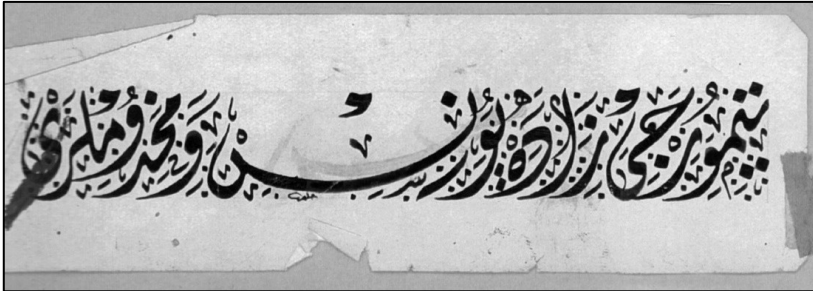 تيمورجى زاده يونس و مخدوملرى